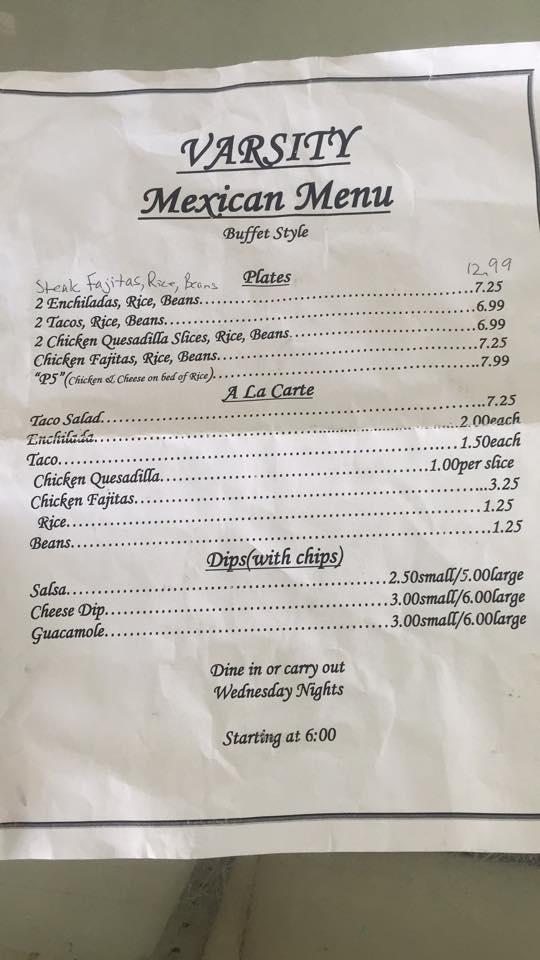 VARSITY
Mexican Menu
Buffet Style
Plates
Steak Fajitas, Rice, Beans 12.99
2 Enchiladas, Rice, Beans........................................7.25
2 Tacos, Rice, Beans........................................6.99
2 Chicken Quesadilla Slices, Rice, Beans........................6.99
Chicken Fajitas, Rice, Beans........................................7.25
"P5"(Chicken & Cheese on bed of Rice)........................................7.99
A La Carte
Taco Salad........................................7.25
Enchilada........................................2.00each
Taco........................................1.50each
Chicken Quesadilla........................................1.00per slice
Chicken Fajitas........................................3.25
Rice........................................1.25
Beans........................................1.25
Dips(with chips)
Salsa........................................2.50small/5.00large
Cheese Dip........................................3.00small/6.00large
Guacamole........................................3.00small/6.00large
Dine in or carry out
Wednesday Nights
Starting at 6:00